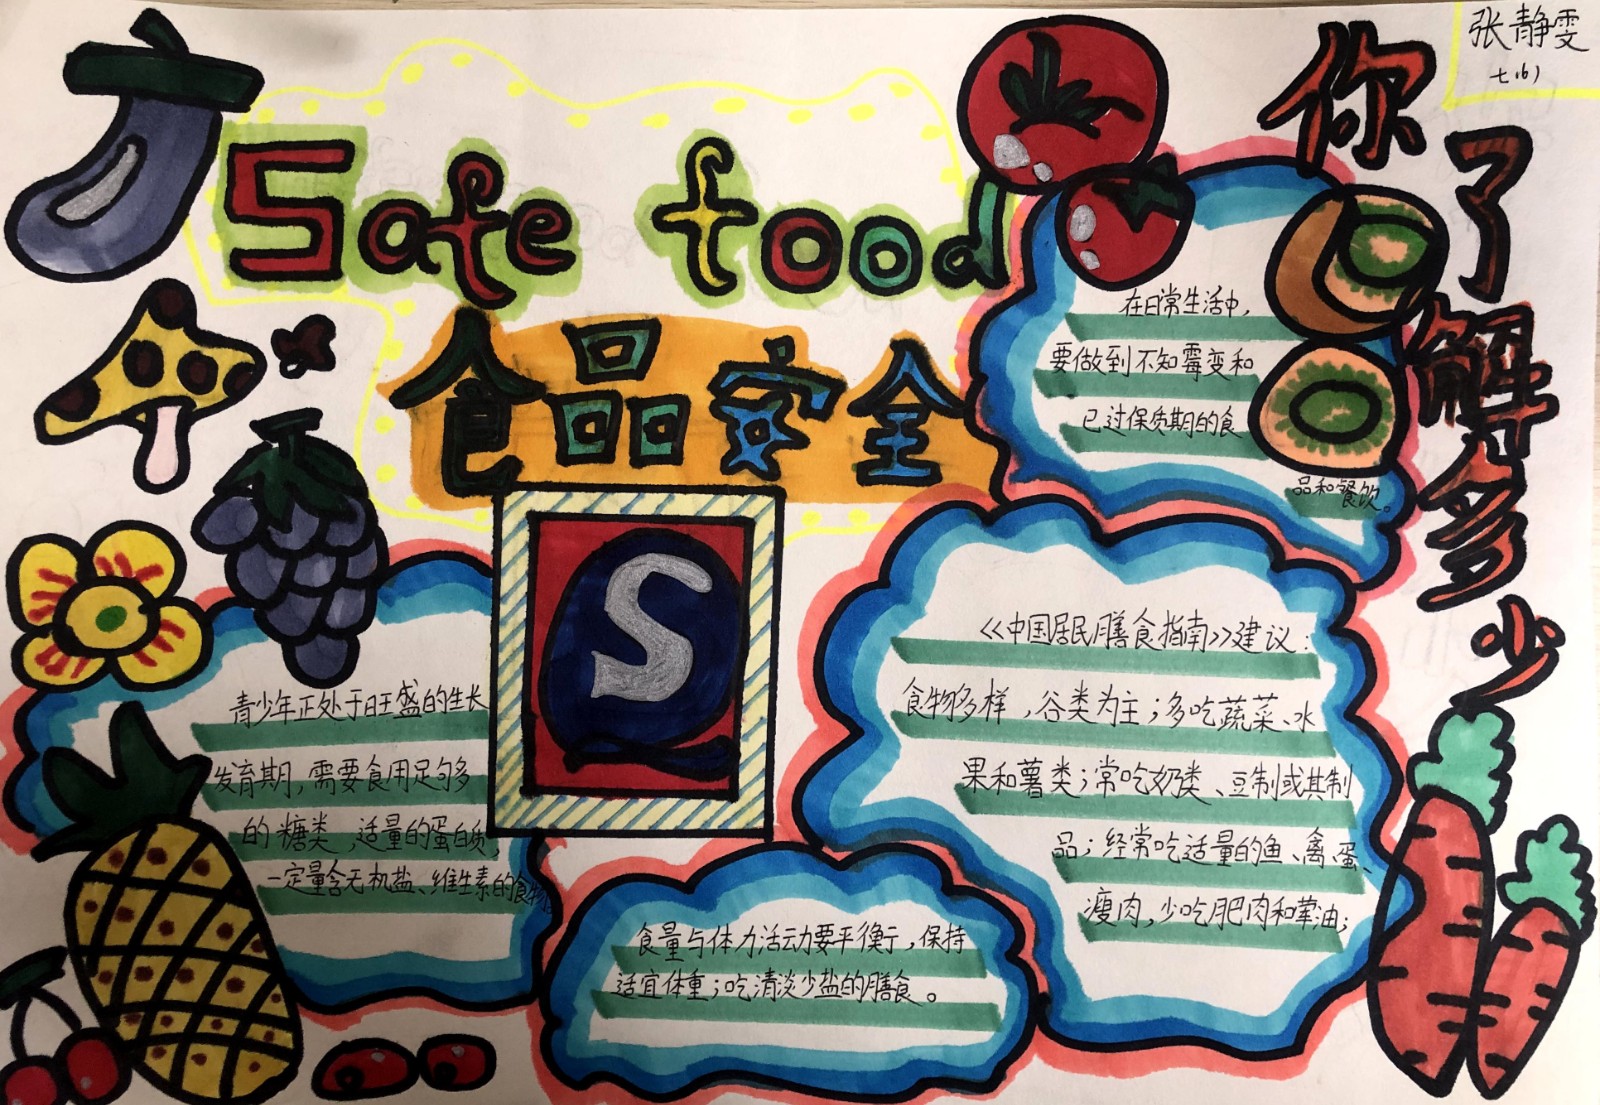 张静雯
七(6)
Safe food
食品安全
你了解多少
在日常生活中,
要做到不知霉变和
已过保质期的食
品和餐饮。
S
青少年正处于旺盛的生长
发育期,需要食用足够多
的糖类,适量的蛋白质,
一定量含无机盐、维生素的食物。
《中国居民膳食指南》建议:
食物多样,谷类为主;多吃蔬菜、水
果和薯类;常吃奶类、豆制或其制
品;经常吃适量的鱼、禽、蛋、
瘦肉,少吃肥肉和荤油;
食量与体力活动要平衡,保持
适宜体重;吃清淡少盐的膳食。